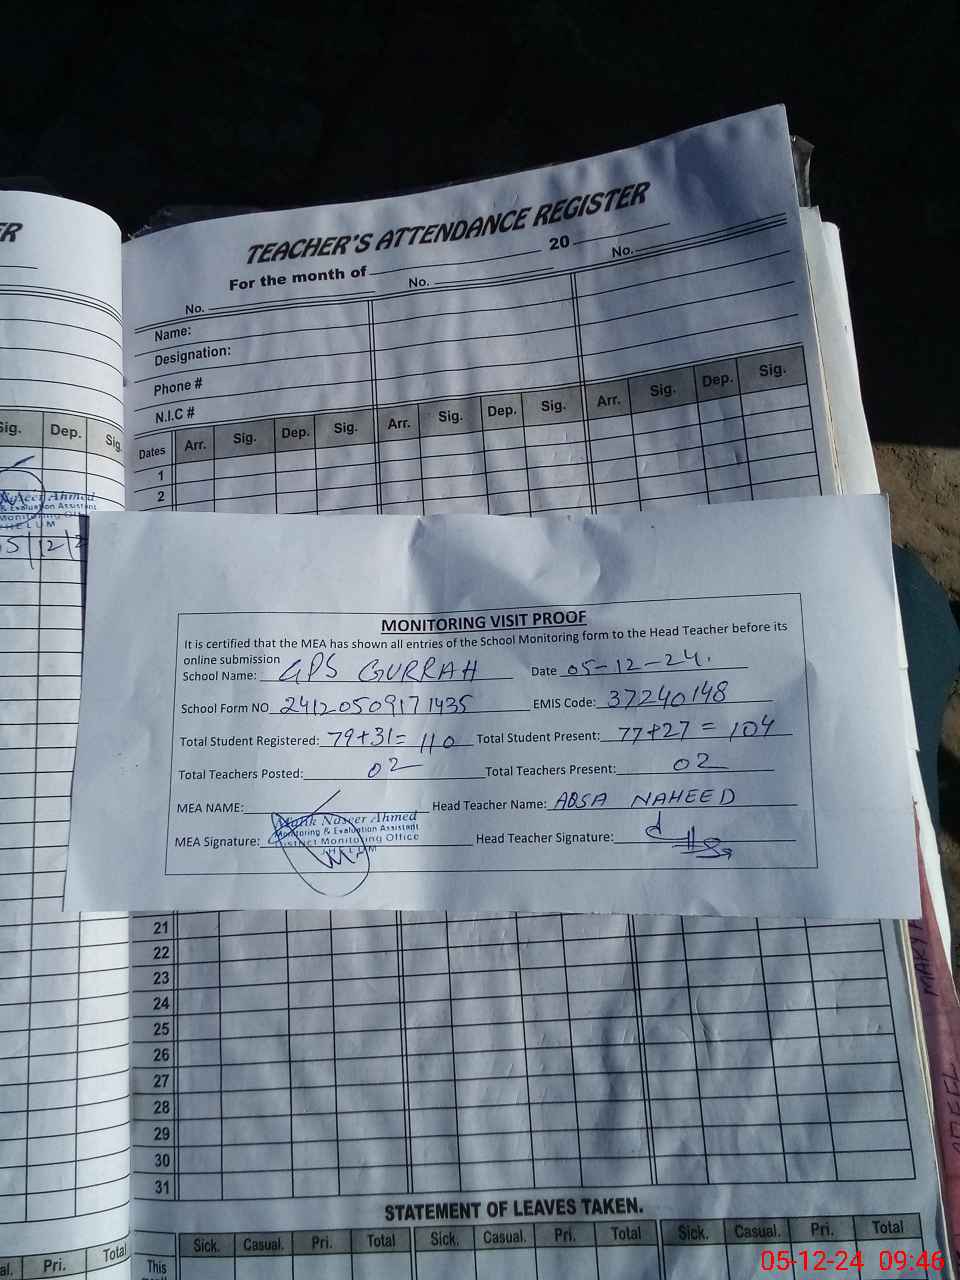 ER
Sig. Dep. Sig.
Naseer Ahmed
& Evaluation Assistant
Monitoring Offi
HELUM
5/12/2
TEACHER'S ATTENDANCE REGISTER
For the month of 20
No. No. No.
Name:
Designation:
Phone #
N.I.C #
Dates Arr. Sig. Dep. Sig. Arr. Sig. Dep. Sig. Arr. Sig. Dep. Sig.
1
2
MONITORING VISIT PROOF
It is certified that the MEA has shown all entries of the School Monitoring form to the Head Teacher before its
online submission
School Name: GPS GURRAH Date 05-12-24.
School Form NO 24120509171435 EMIS Code: 37240148
Total Student Registered: 79+31= 110 Total Student Present: 77+27 = 104
Total Teachers Posted: 02 Total Teachers Present: 02
MEA NAME: Head Teacher Name: ABSA NAHEED
Malik Naseer Ahmed
Monitoring & Evaluation Assistant
District Monitoring Office
JHELUM
MEA Signature: Head Teacher Signature:
21
22
23
24
25
26
27
28
29
30
31
STATEMENT OF LEAVES TAKEN.
al. Pri. Total
Sick. Casual. Pri. Total Sick. Casual. Pri. Total Sick. Casual. Pri. Total
This
05-12-24 09:46